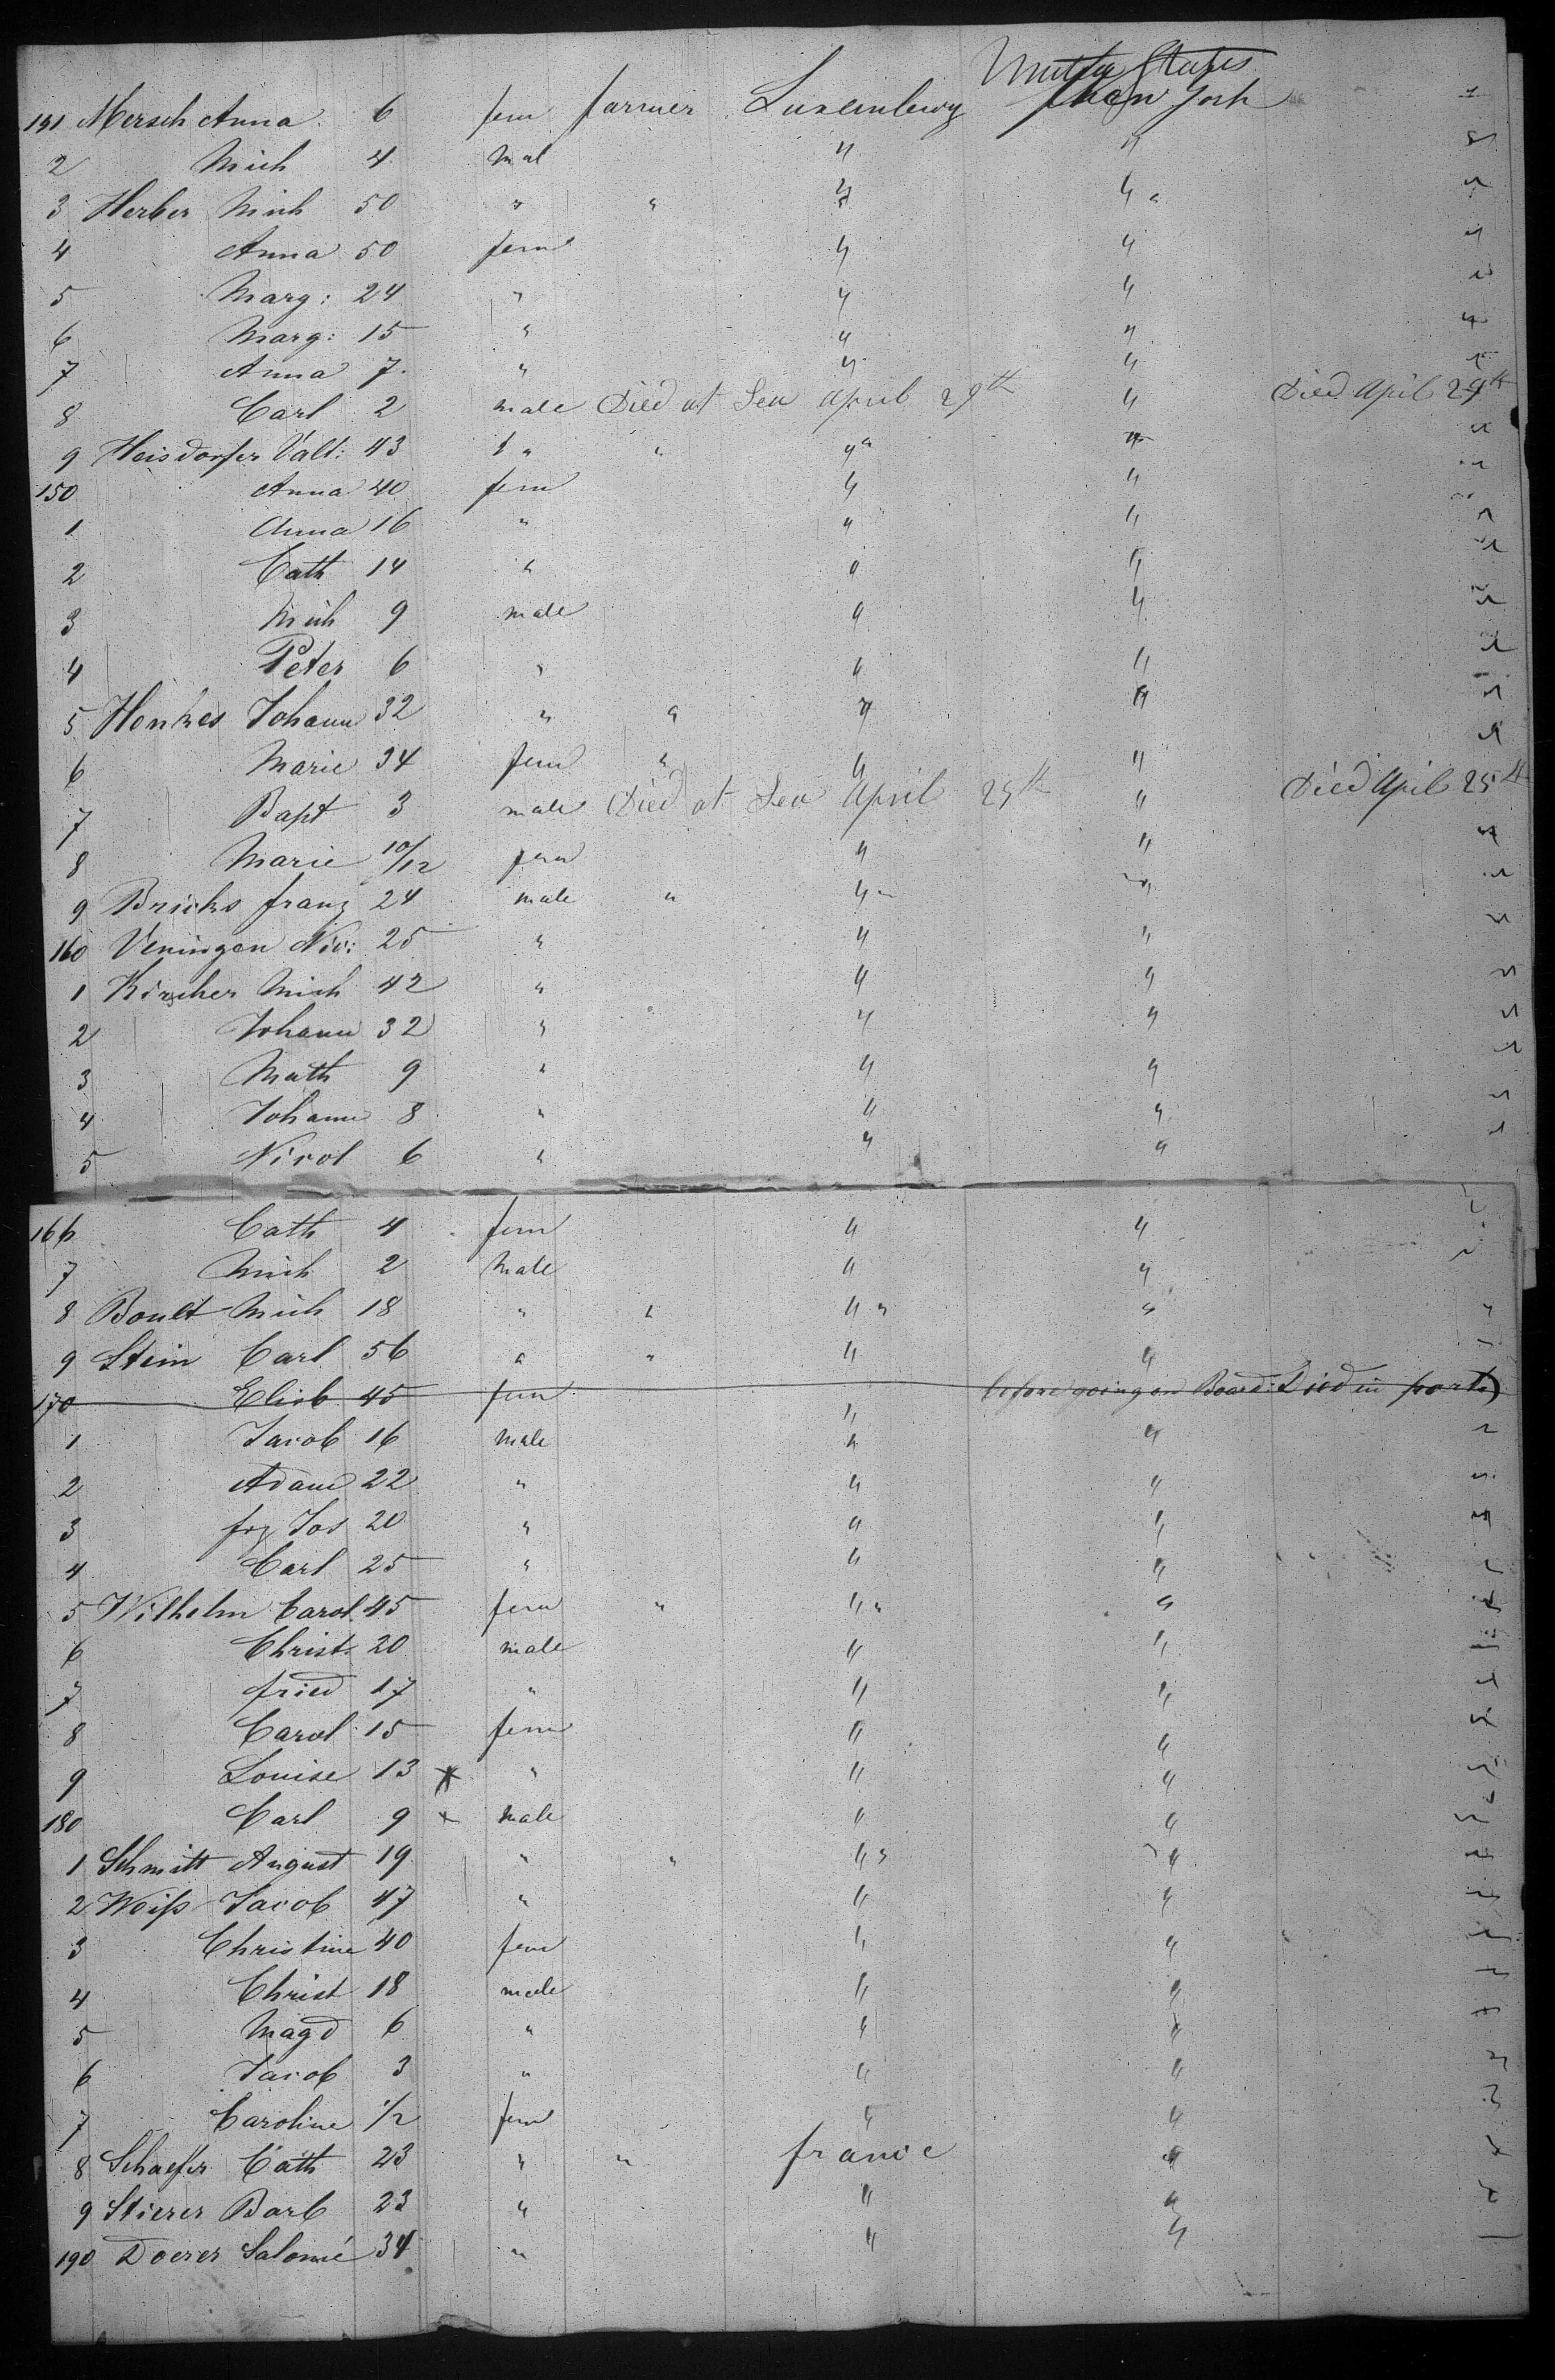 United States
141 Mersch Anna 6 fem farmer Luxemburg New York 1
2 Mich 4 Mal " "
3 Herber Mich 50 " " " "
4 Anna 50 fem " "
5 Marg: 24 " " "
6 Marg: 15 " " "
7 Anna 7. " " "
8 Carl 2 male Died at Sea April 29th " Died April 29th
9 Heisdorfer Valt: 43 " " " "
150 Anna 40 fem " "
1 Anna 16 " " "
2 Cath 14 " " "
3 Mich 9 male " "
4 Peter 6 " " "
5 Henkes Johann 32 " " " "
6 Marie 34 fem " " "
7 Bapt 3 male Died at Sea April 25th " Died April 25th
8 Marie 10/12 fem " "
9 Bricks franz 24 male " " "
160 Veningen Nic: 25 " " "
1 Kirscher Mich 42 " " "
2 Johann 32 " " "
3 Math 9 " " "
4 Johann 8 " " "
5 Nicol 6 " " "
166 Cath 4 fem " "
7 Mich 2 Male " "
8 Boult Mich 18 " " " "
9 Stein Carl 56 " " " "
170 Elisb 45 fem " before going on Board: Died in port)
1 Jacob 16 Male " "
2 Adam 22 " " "
3 frz Jos 20 " " "
4 Carl 25 " " "
5 Wilhelm Carol. 45 fem " " "
6 Christ. 20 male " "
7 fried 17 " " "
8 Carol 15 fem " "
9 Louise 13 " " "
180 Carl 9 Male " "
1 Schmitt August 19 " " " "
2 Weiß Jacob 47 " " "
3 Christine 40 fem " "
4 Christ 18 male " "
5 Magd 6 " " "
6 Jacob 3 " " "
7 Caroline 1/2 fem " "
8 Schaefer Cath 23 " " france "
9 Stierer Barb 23 " " "
190 Doerer Salomé 34 " " "